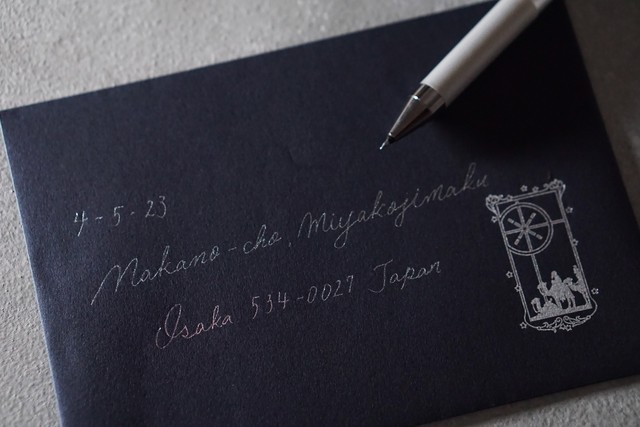 4-5-23
Nakano-cho, Miyakojimaku
Osaka 534-0027 Japan